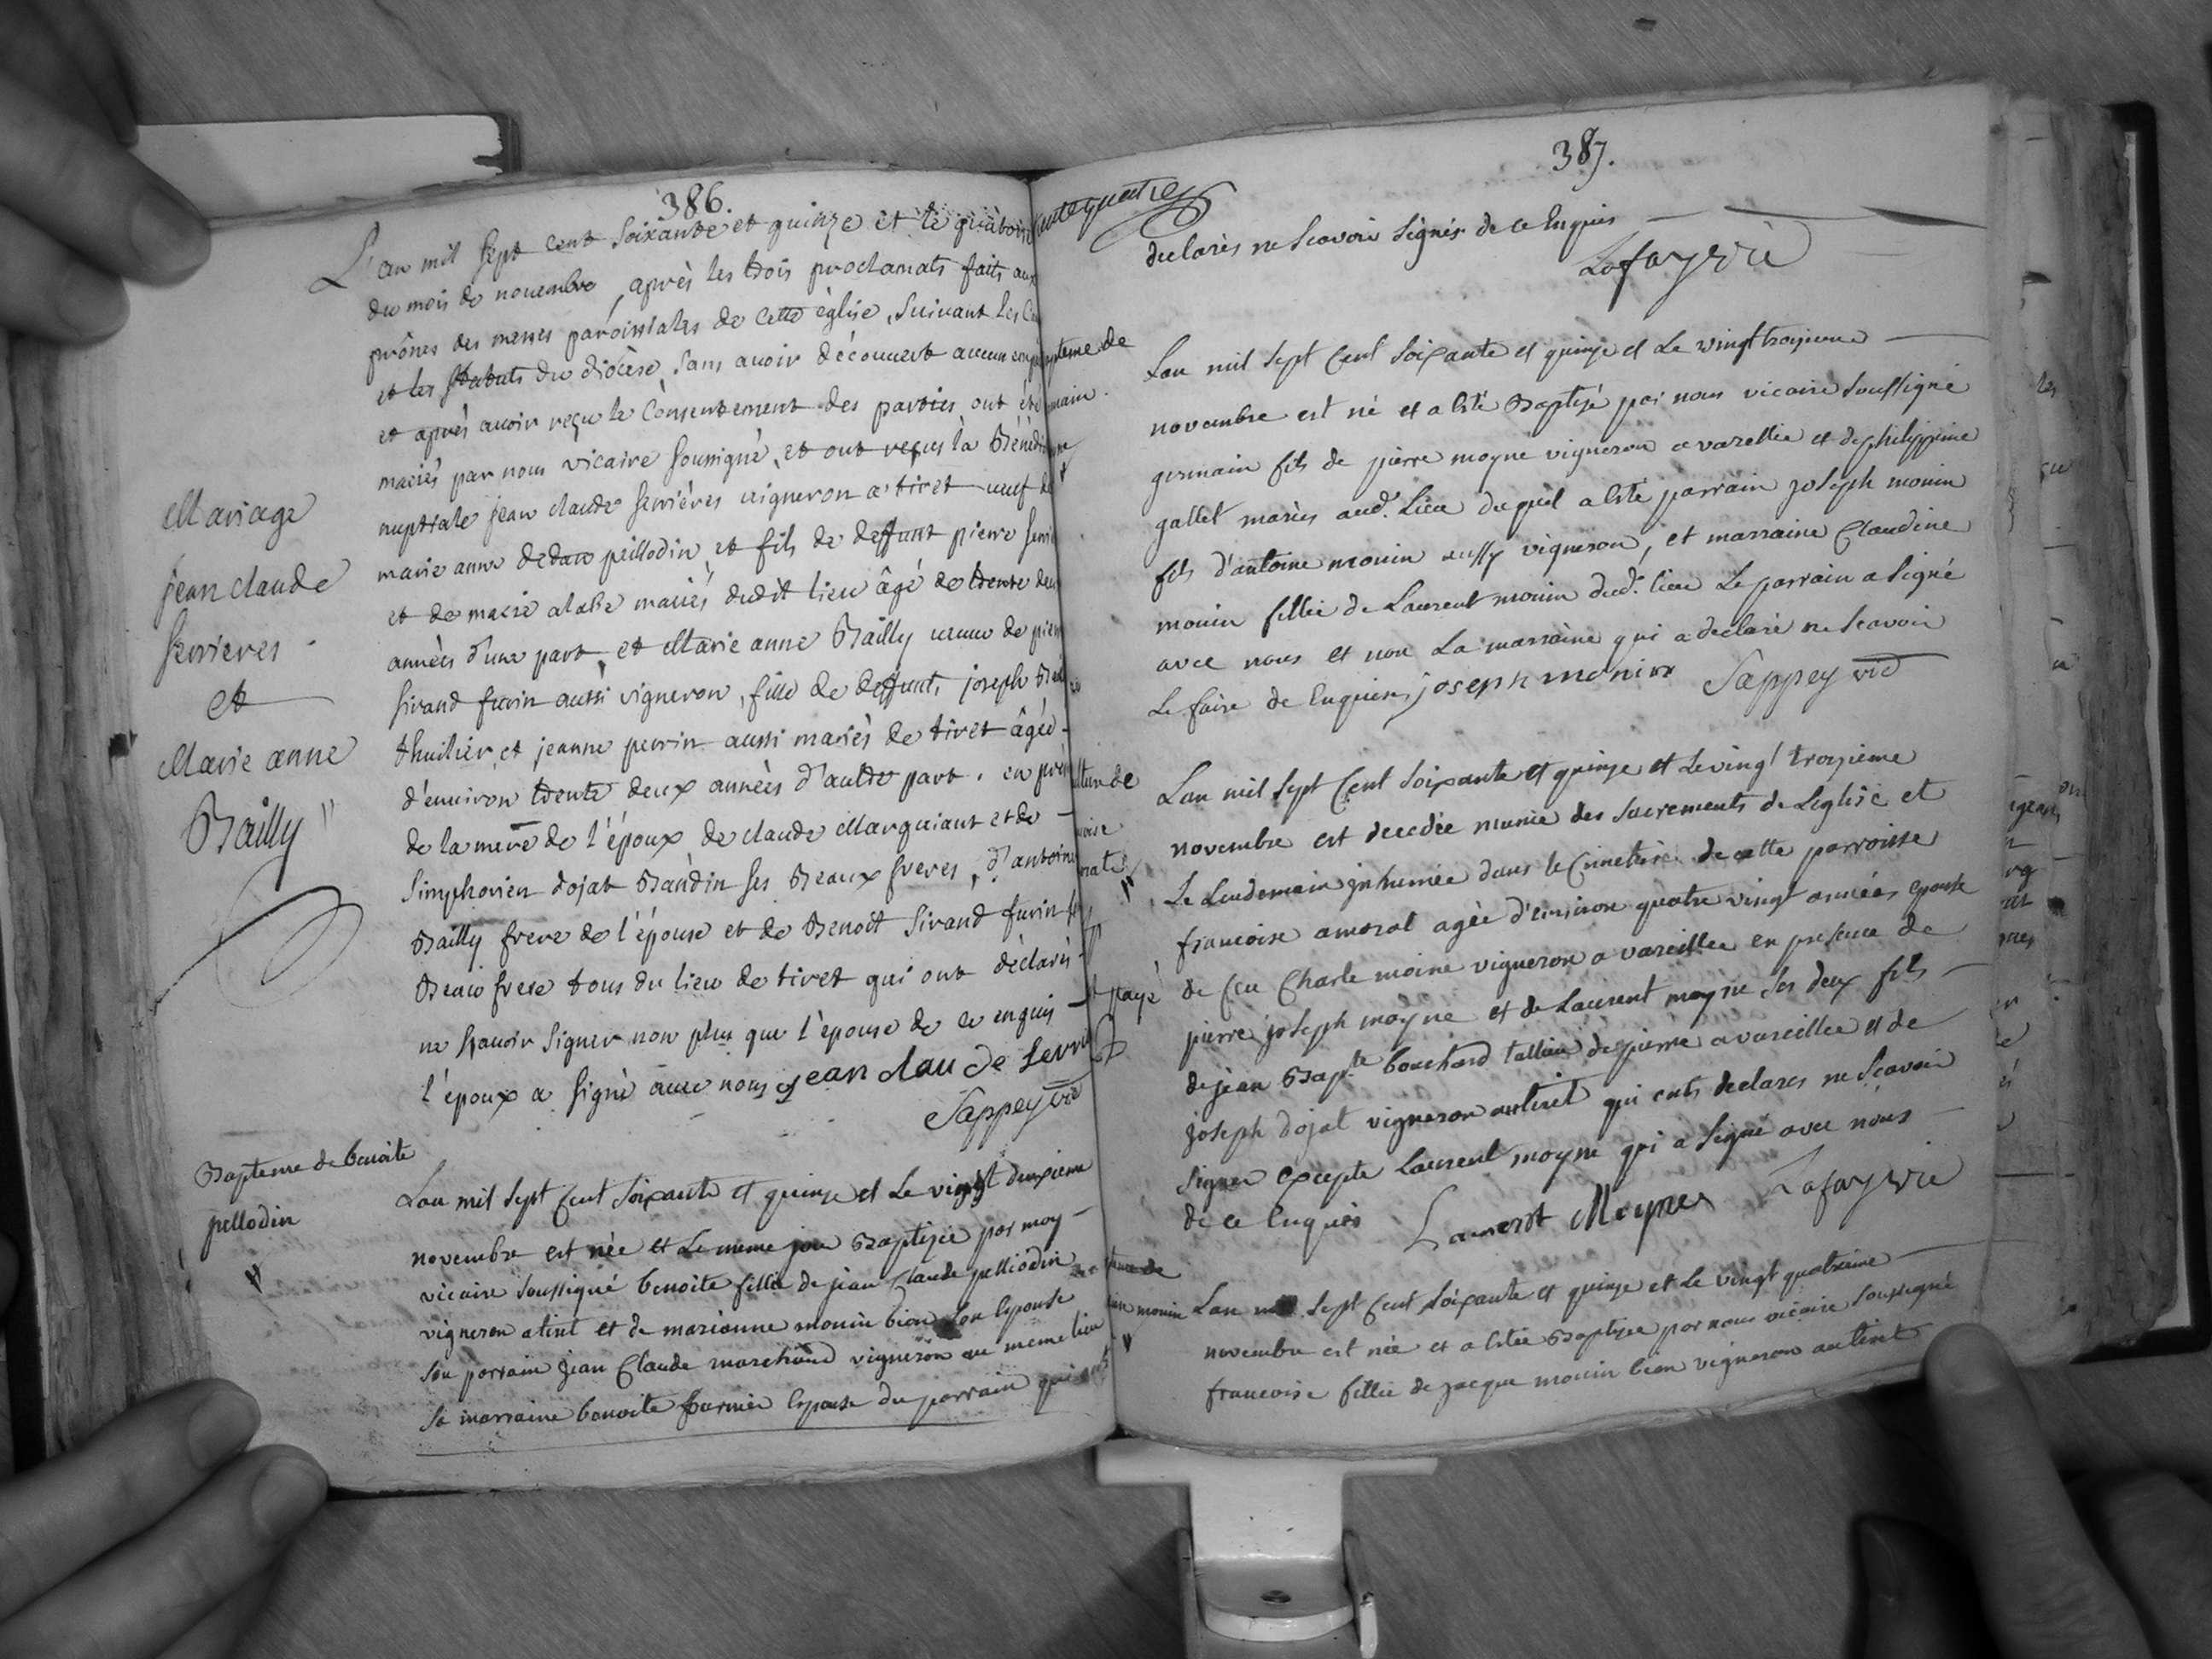 386.
L'an mil sept cent soixante et quinze et le quatorz
du mois de novembre, après les trois proclamats faits aux
prônes des messes paroissiales de cette église, suivant les
et les statuts du diocèse, sans avoir découvert aucun
et après avoir reçu le consentement des parties ont été
mariés par nous vicaire soussigné, et ont reçus la Bénédi
nuptiale jean claude serrières vigneron a tiret veuf de
marie anne dedau peillodin et fils de deffunt pierre serri
et de marie alabe mariés dudit lieu âgé de trente deux
années d'une part, et Marie anne Bailly veuve de pierre
sirand furin aussi vigneron, fille de deffunt, joseph Bai
thuilier et jeanne perrin aussi mariés de tiret âgée
d'environ trente deux années d'autre part. en prés
de la mere de l'époux de claude Marquiant et de
simphorien dojat Bandin ses Beaux freres, d'antoine
Bailly frere de l'épouse et de Benoît sirand furin
Beau frere tous du lieu de tiret qui ont déclarés
ne savoir signer non plus que l'épouse de ce enquis
l'époux a signé avec nous jean claude serri
Sappey vic
Mariage
jean claude
serrieres
et
Marie anne
Bailly
Bapteme de benoite
pellodin
Lan mil sept Cent soixante et quinze et Le vingt deuxieme
novembre est née et Le meme jour Baptizée par moy
vicaire soussigné benoite fillie de jean Claude pelliodin
vigneron a tiret et de marianne monin bion son Epouse
son parrain jean Claude marchand vigneron au meme lieu
sa marraine benoite fournier Epouse du parrain qui ont
387.
declarés ne scavoir signés de ce Enquis
Lafay vic
Lan mil sept Cent soixante et quinze et Le vingt troizieme
novembre est né et a Eté Baptizé par nous vicaire soussigné
germain fils de pierre moyne vigneron a vareille et de philippine
gallet mariés aud. Lieu duquel a Eté parrain joseph monin
fils d'antoine monin aussy vigneron, et marraine Claudine
monin fillie de Laurent monin dud. lieu Le parrain a signé
avec nous et non La marraine qui a declaré ne scavoir
Le faire de Enquis, joseph monin Sappey vic
Lan mil sept Cent soixante et quinze et Le vingt troizieme
novembre est decedée munie des sacrements de Leglise et
Le Lendemain inhumée dans le Cimetiere de cette parroisse
francoise amorat agée d'environ quatre vingt années epouse
de feu Charle moine vigneron a vareille en presence de
pierre joseph moyne et de Laurent moyne ses deux fils
de jean Bap.te bouchard tallieur de pierre a vareille et de
joseph dojat vigneron au tiret qui onts declarés ne scavoir
signer excepte Laurent moyne qui a signé avec nous
de ce Enquis Laurent Moyne Lafay vic
Lan mil sept Cent soixante et quinze et Le vingt quatrieme
novembre est née et a Etée Baptizée par nous vicaire soussigné
francoise fillie de jacque monin bion vigneron au tiret